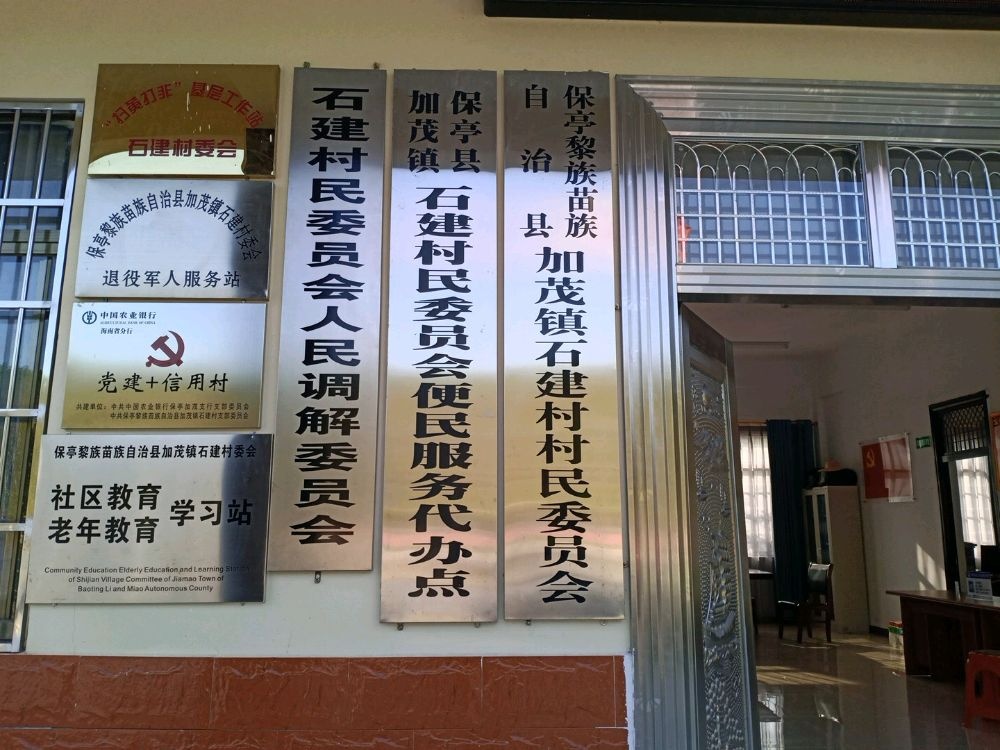 "扫黄打非"基层工作站
石建村委会
保亭黎族苗族自治县加茂镇石建村委会
退役军人服务站
中国农业银行
AGRICULTURAL BANK OF CHINA
海南省分行
党建+信用村
共建单位：中共中国农业银行保亭加茂支行支部委员会
中共保亭黎族苗族自治县加茂镇石建村支部委员会
保亭黎族苗族自治县加茂镇石建村委会
社区教育
老年教育
学习站
Community Education Elderly Education and Learning Station
of Shijian Village Committee of Jiamao Town of
Baoting Li and Miao Autonomous County
石建村民委员会人民调解委员会
保亭县
加茂镇
石建村民委员会便民服务代办点
保亭黎族苗族
自治县
加茂镇石建村村民委员会